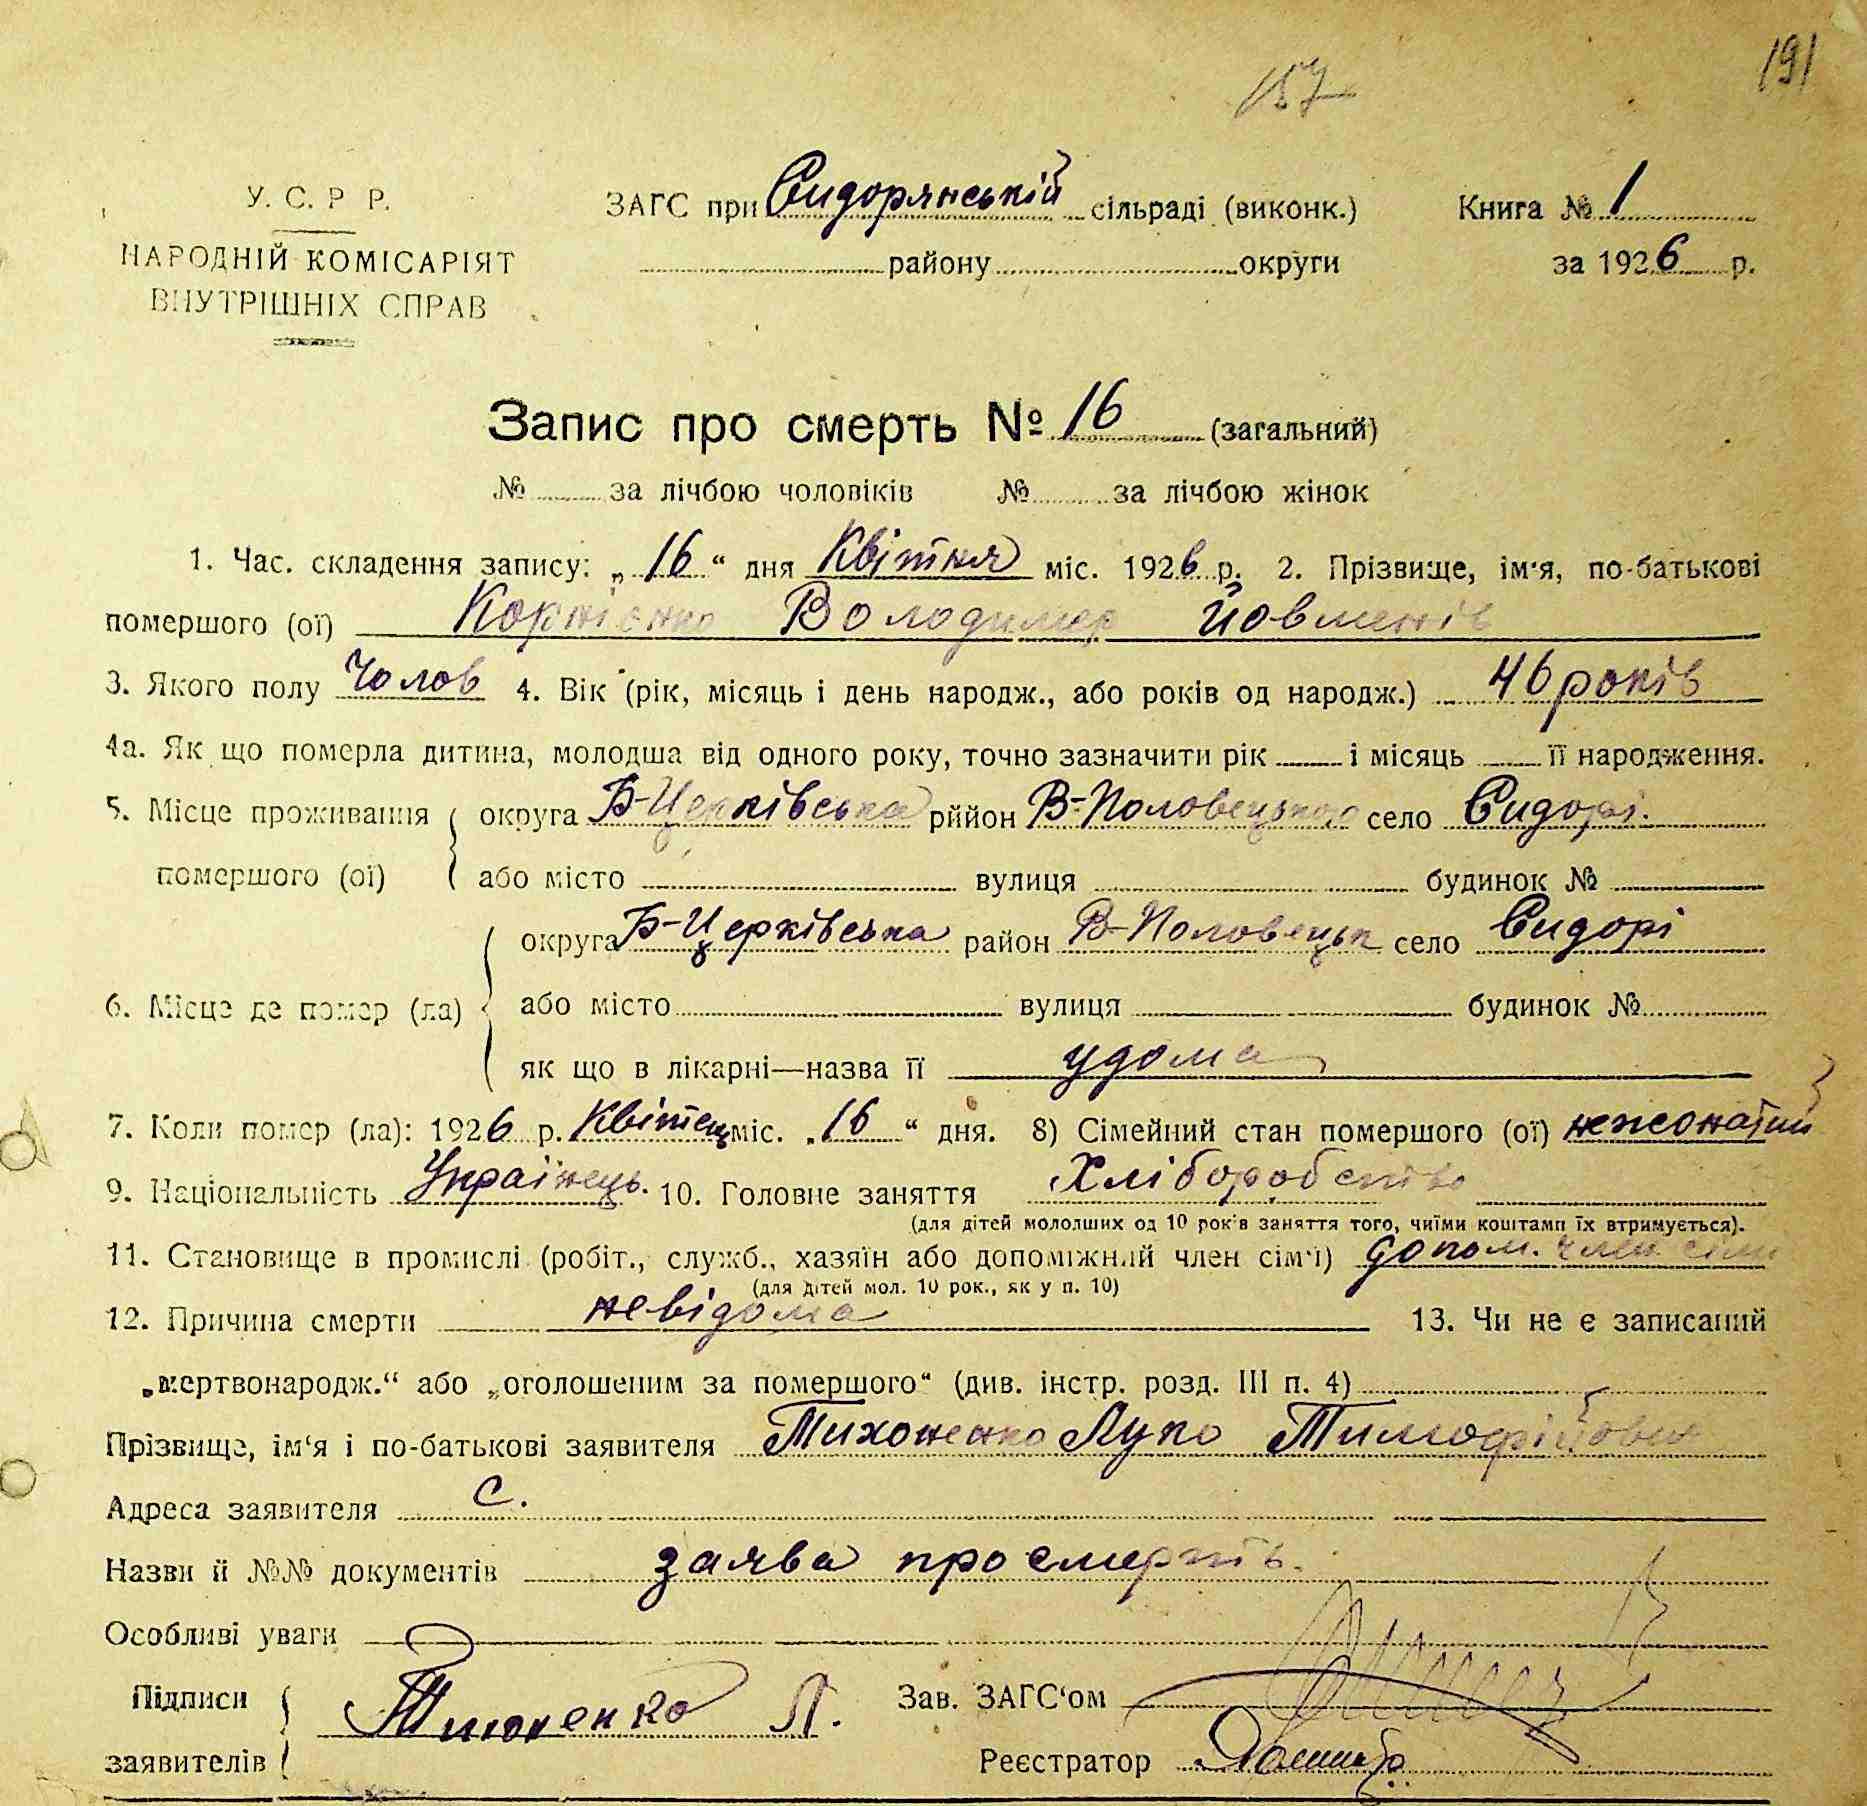 191
157
У. С. Р Р.
НАРОДНІЙ КОМІСАРІЯТ
ВНУТРІШНІХ СПРАВ
ЗАГС при Сидорянській сільраді (виконк.)
району округи
Книга № 1
за 1926 р.
Запис про смерть № 16 (загальний)
№ за лічбою чоловіків № за лічбою жінок
1. Час. складення запису: „16“ дня Квітня міс. 1926 р. 2. Прізвище, ім'я, по-батькові
помершого (ої) Корнієнко Володимер
3. Якого полу Чолов 4. Вік (рік, місяць і день народж., або років од народж.) 46 років
4а. Як що померла дитина, молодша від одного року, точно зазначити рік і місяць її народження.
5. Місце проживання округа Б-Церківська рййон В-Половецького село Сидорі.
помершого (ої) або місто вулиця будинок №
округа Б-Церківська район В-Половецьк село Сидорі
6. Місце де помер (ла) або місто вулиця будинок №
як що в лікарні—назва її удома
7. Коли помер (ла): 1926 р. Квітец міс. „16“ дня. 8) Сімейний стан помершого (ої) нежонатий
9. Національність Українець. 10. Головне заняття Хліборобство
(для дітей мололших од 10 рок'в заняття того, чиїми коштами їх втримується).
11. Становище в промислі (робіт., служб., хазяїн або допоміжний член сім'ї) допом. член сімї
(для дітей мол. 10 рок., як у п. 10)
12. Причина смерти невідома 13. Чи не є записаний
„мертвонародж.“ або „оголошеним за помершого“ (див. інстр. розд. III п. 4)
Прізвище, ім'я і по-батькові заявителя Тихоненко Лука Тимофійович
Адреса заявителя с.
Назви й №№ документів заява про смерть.
Особливі уваги
Підписи Тихоненко Л. Зав. ЗАГС'ом
заявителів Реєстратор